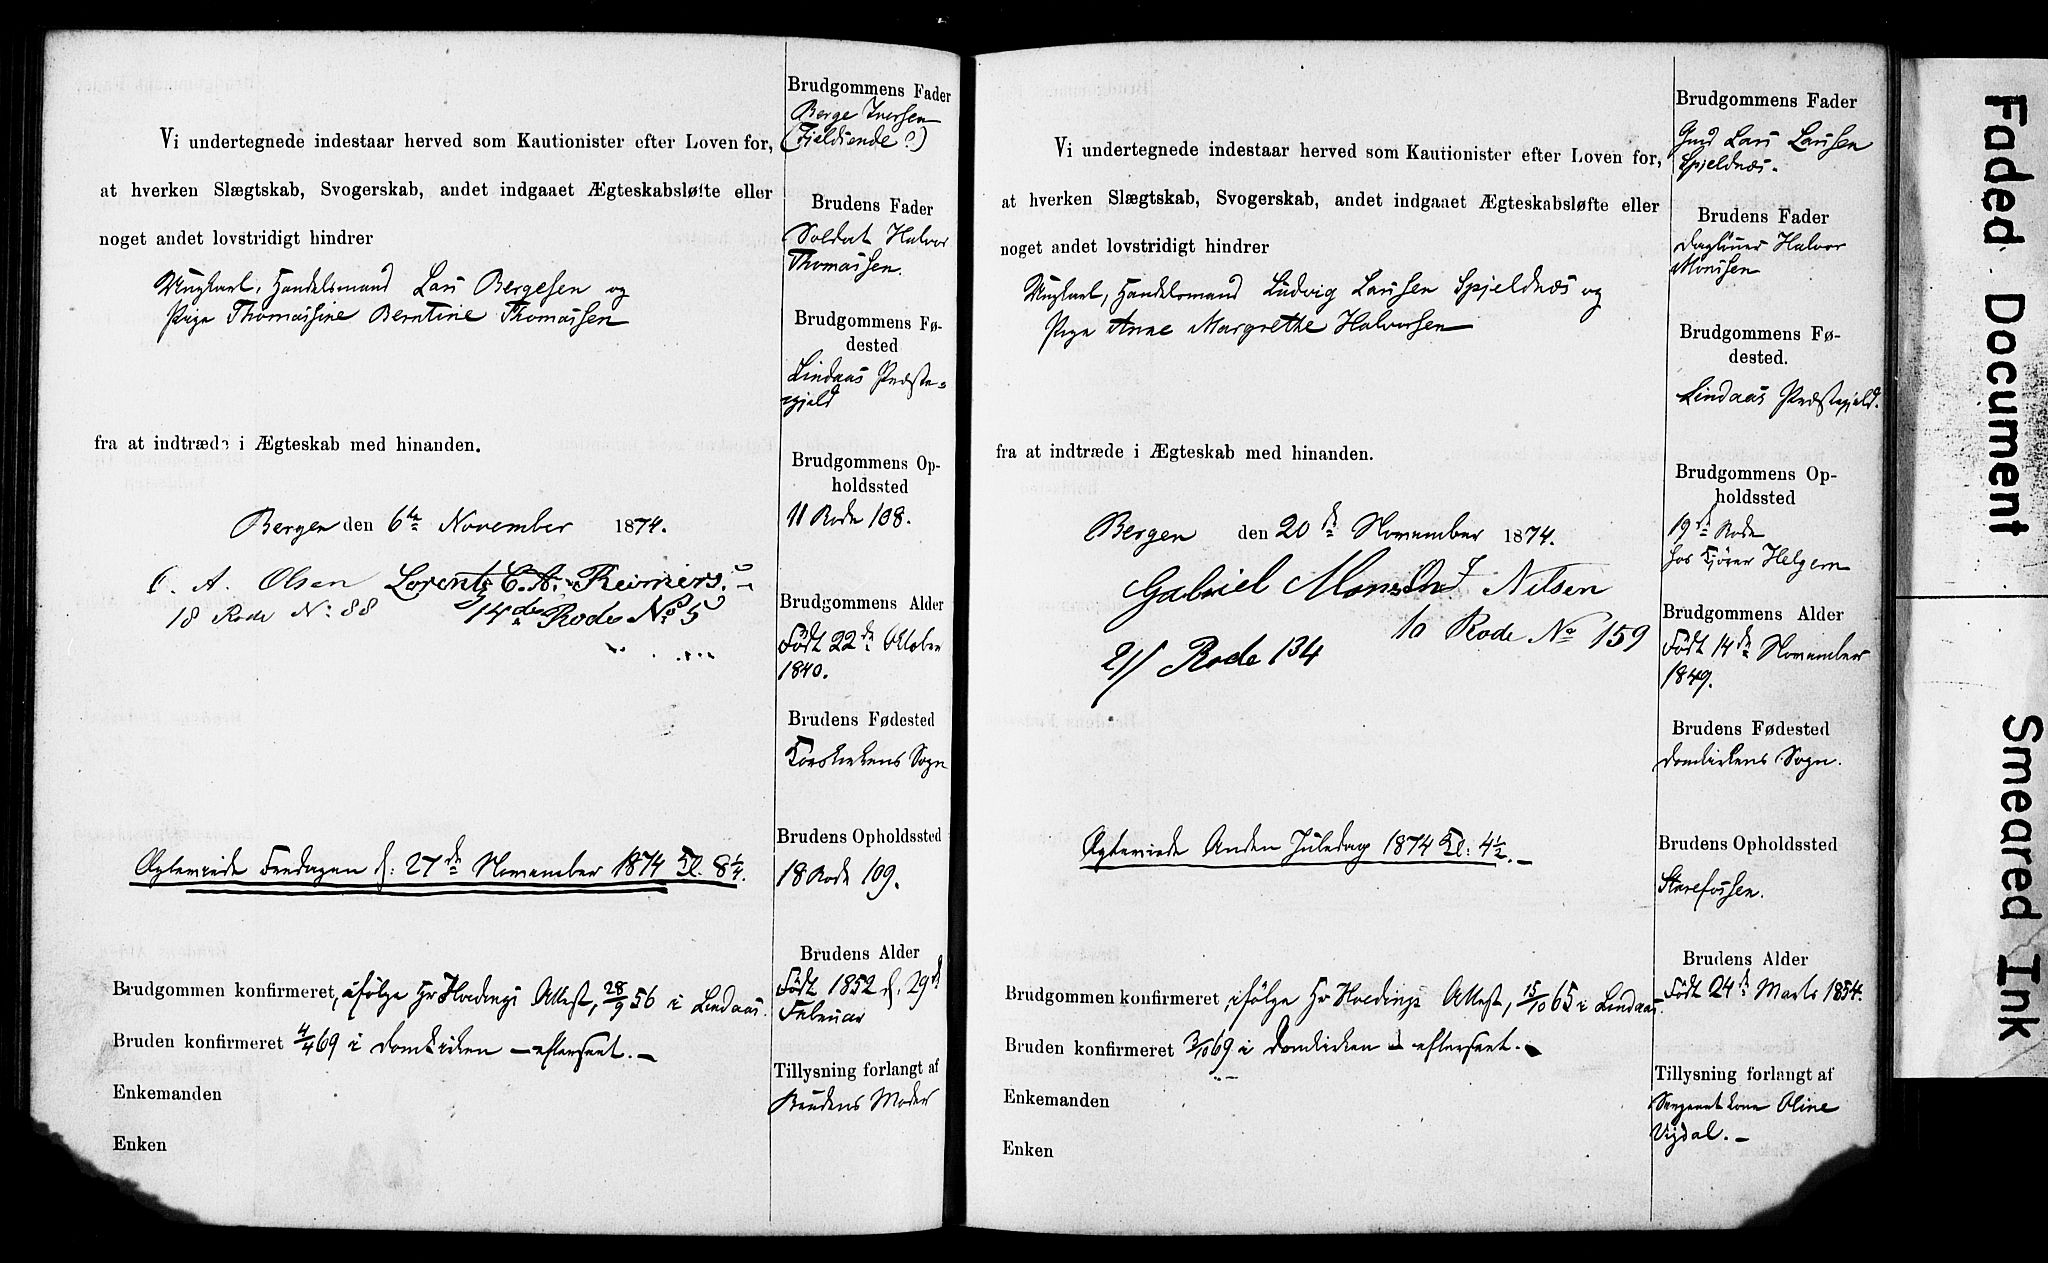 Vi undertegnede indestaar herved som Kautionister efter Loven for,
at hverken Slægtskab, Svogerskab, andet indgaaet Ægteskabsløfte eller
noget andet lovstridigt hindrer
Ungkarl, Handelsmand Lars Bergesen og
Pige Thomassine Berntine Thomassen
fra at indtræde i Ægteskab med hinanden.
Bergen den 6te November 1874.
C. A. Olsen Lorentz C. A. Reimers.
18 Rode No 88 14de Rode No 5
Ægteviede Fredagen d: 27de November 1874 Kl. 8 1/4.
Brudgommen konfirmeret, ifølge Hr Hvedings Attest, 28/9 56 i Lindaas.
Bruden konfirmeret 4/4 69 i Domkirken – efterseet. –
Enkemanden
Enken
Brudgommens Fader
Berge Iversen
(Fjeldsende?)
Brudens Fader
Soldat Halvor
Thomassen.
Brudgommens Fø-
dested
Lindaas Præste-
gjeld
Brudgommens Op-
holdssted
11 Rode 108.
Brudgommens Alder
Født 22de Oktober
1840.
Brudens Fødested
Korskirkens Sogn
Brudens Opholdssted
18 Rode 109.
Brudens Alder
Født 1852 d. 29de
Februar
Tillysning forlangt af
Brudens Moder
Vi undertegnede indestaar herved som Kautionister efter Loven for,
at hverken Slægtskab, Svogerskab, andet indgaaet Ægteskabsløfte eller
noget andet lovstridigt hindrer
Ungkarl, Handelsmand Ludvig Larssen Spjeldnæs og
Pige Anne Margrethe Halvorsen
fra at indtræde i Ægteskab med hinanden.
Bergen den 20de November 1874.
Gabriel Monsen Nilsen
10 Rode No 159
21/ Rode 134
Ægteviede Anden Juledag 1874 Kl: 4 1/2. –
Brudgommen konfirmeret, ifølge Hr Hvedings Attest, 15/10 65 i Lindaas.
Bruden konfirmeret 3/10 69 i Domkirken – efterseet. –
Enkemanden
Enken
Brudgommens Fader
Gmd Lars Larssen
Spjeldnæs.
Brudens Fader
Dagleiner Halvor
Monssen
Brudgommens Fø-
dested.
Lindaas Præstegjeld.
Brudgommens Op-
holdssted
19de Rode
hos Kjører Helgem
Brudgommens Alder
Født 14de November
1849.
Brudens Fødested
Domkirkens Sogn.
Brudens Opholdssted
Starefossen.
Brudens Alder
Født 24de Marts 1854.
Tillysning forlangt af
Sergeantkone Oline
Vigdal. –
Faded Document
Smeared Ink